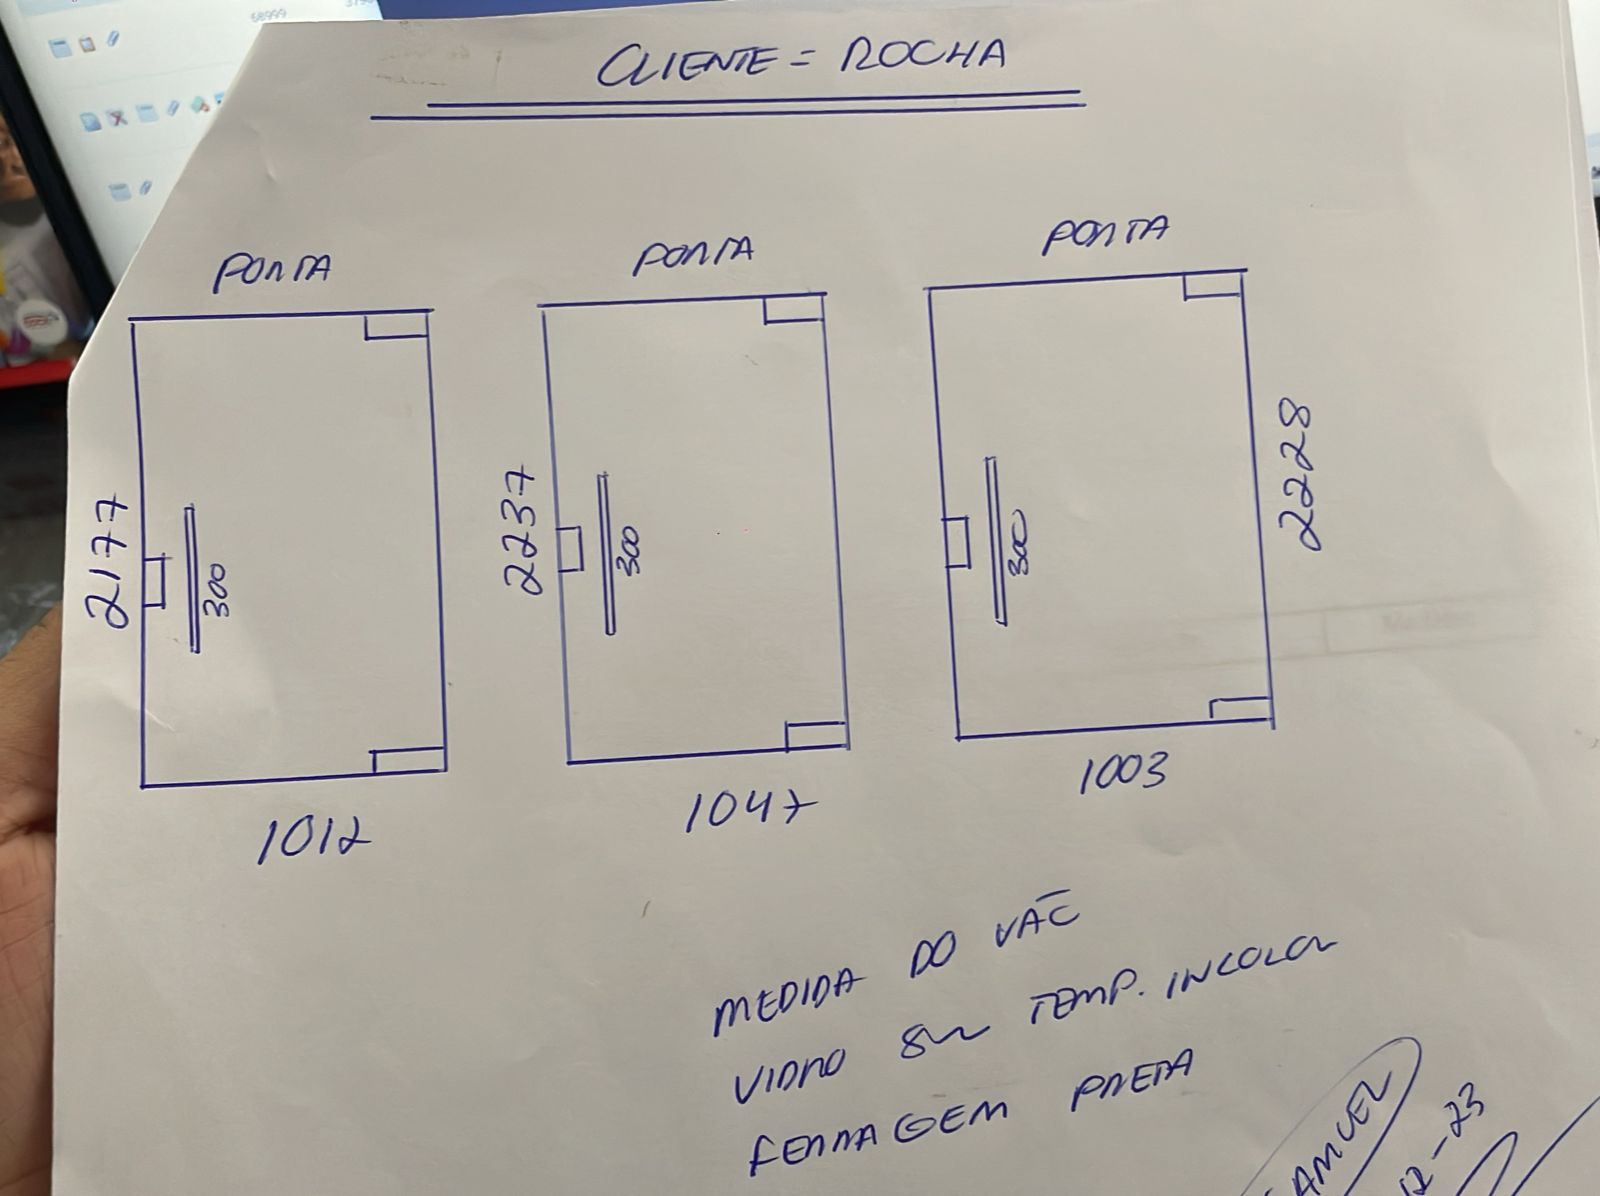 CLIENTE = ROCHA
PORTA
PORTA
PORTA
2177
300
1012
2237
300
1047
2228
300
1003
MEDIDA DO VÃO
VIDRO 8m TEMP. INCOLOR
FERRAGEM PRETA
SAMUEL
12-23
68999